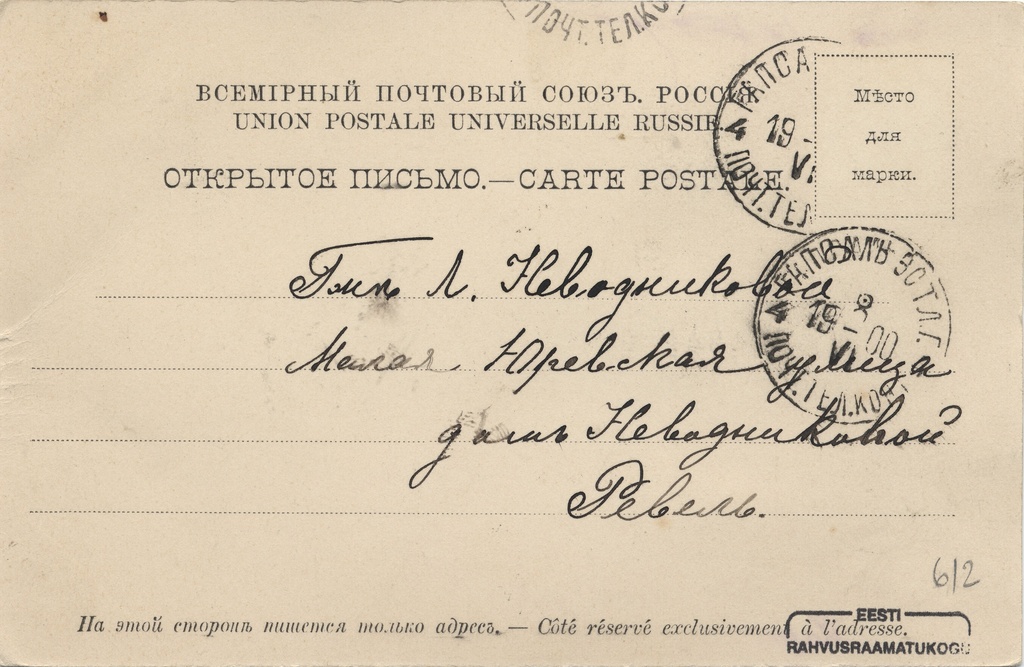 ПОЧТ.ТЕЛ.КО
ВСЕМІРНЫЙ ПОЧТОВЫЙ СОЮЗЪ. РОССІЯ
UNION POSTALE UNIVERSELLE RUSSIE
ОТКРЫТОЕ ПИСЬМО.—CARTE POSTALE.
ГАПСА
4 19-
VI
ПОЧТ.ТЕЛ
Мѣсто
для
марки.
ГАПСАЛЬ ЭСТЛ.Г.
4 19 8
VI 00
ПОЧТ.ТЕЛ.КОНТ
Л. Неводниковой
Малая Юревская улица
домъ Неводниковой
Ревель.
612
На этой сторонѣ пишется только адресъ. — Côté réservé exclusivement à l'adresse.
EESTI
RAHVUSRAAMATUKOGU